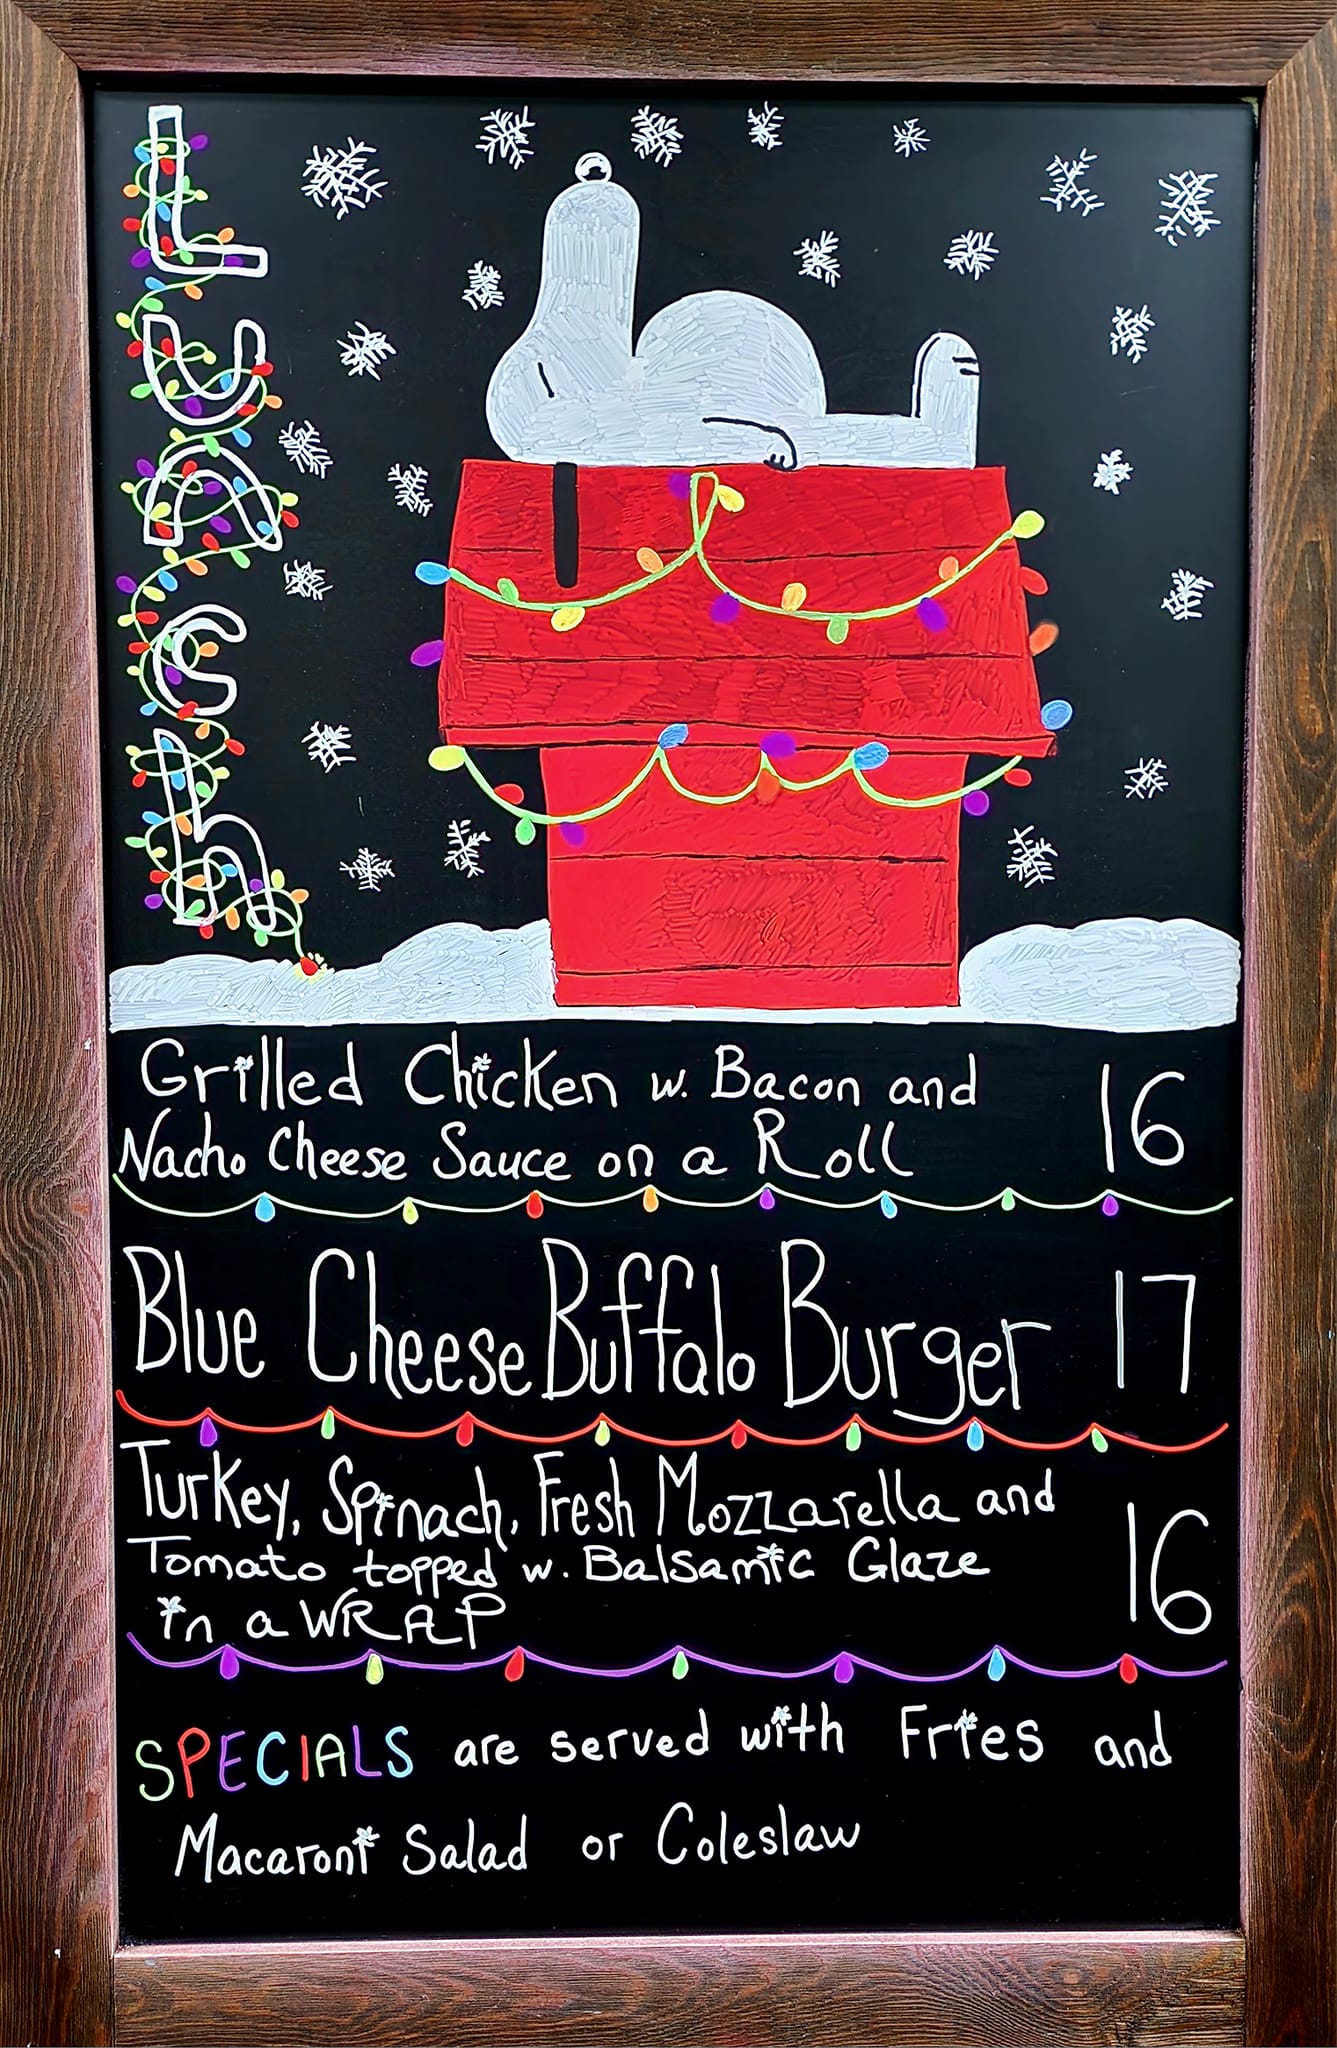 Lunch
Grilled Chicken w. Bacon and
Nacho Cheese Sauce on a Roll 16
Blue Cheese Buffalo Burger 17
Turkey, Spinach, Fresh Mozzarella and
Tomato topped w. Balsamic Glaze
in a WRAP 16
SPECIALS are served with Fries and
Macaroni Salad or Coleslaw